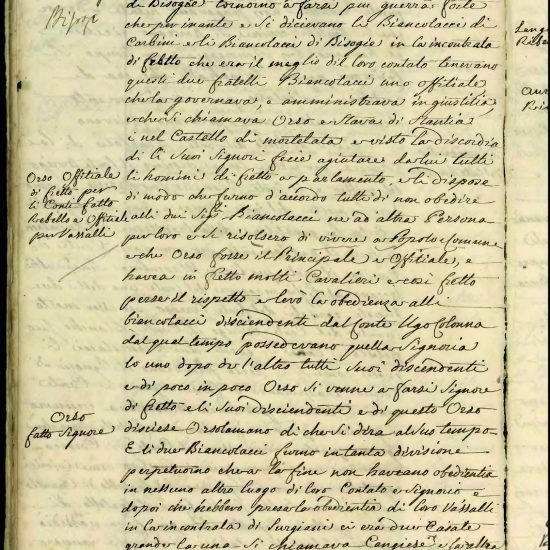 Bisogi
di Bisogie tornorno a farsi piu guerra forte
che per inante e si dicevano li Biancolacci di
Carbini e li Biancolacci di Bisogie in la incontrata
di fretto che era il meglio dil loro contato tenevano
questi due fratelli Biancolacci uno offitiale
che la governava, e amministrava in giustitia,
e che si chiamava Orso e stava di stantia
i nel Castello di mortelata e visto la discordia
di li suoi signori fecie agiutare da lui tutti
li homini di fretto a parlamento, e li dispose
di modo che furno d'accordo tutti di non obedire
alli dui Sig.ri Biancolacci ne ad altra Persona
per loro e si risolsero di vivere a Popolo e Comune
e che Orso fosse il Principale e Offitiale, e
havea in fretto molti Cavalieri e cosi fretto
perse il rispetto e levò la obedienza alli
biancolacci discendenti dal Conte Ugo Colonna
dal qual tempo possedevano quella Signoria
lo uno dopo de l'altro tutti suoi discendenti
e di poco in poco Orso si venne a farsi Signore
di fretto e li suoi discendenti e di questo Orso
disciese Orsolamano di che si dira al suo tempo
E li due Biancolacci furno in tanta divisione
perpetuorno che a la fine non haveano obedientia
in nessuno altro luogo di loro Contato e Signoria e
dopoi che hebbero presa la obedientia di loro Vassalli
in la incontrata di Surgiani ci era due Casate
grande la una si chiamava Cangiese e la altra
Orso Offitiale
di fretto per
li Conti fatto
Rebello e Offitiale
per Vassalli
Orso
fatto Signore